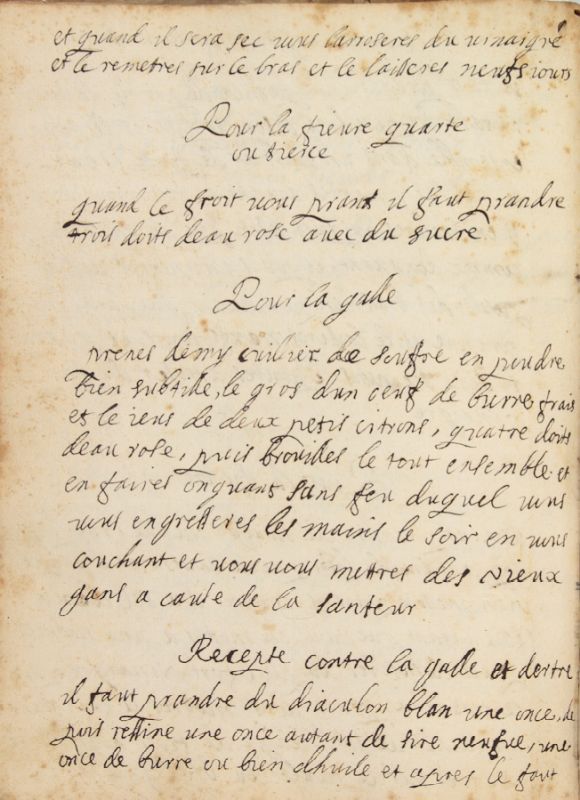 et quand il sera sec vous larroseres du vinaigre
et le remetres sur le bras et le lailleres neufs iours
Pour la fieure quarte
ou tierce
quand le froit vous prant il faut prandre
trois doits deau rose avec du sucre
Pour la galle
prenes demy cuilier de souffre en poudre
bien subtille, le gros dun oeuf de burre frais
et le ius de deux petis citrons, quatre doits
deau rose, puis brouilles le tout ensemble et
en faires onguant sans feu duquel vous
vous engresseres les mains le soir en vous
couchant et vous vous mettres des vieux
gans a cause de la santeur
Recepte contre la galle et dertre
il faut prandre du diaculon blan une once, de
pois resine une once autant de sire neufue, une
once de burre ou bien dhuile et apres le faut